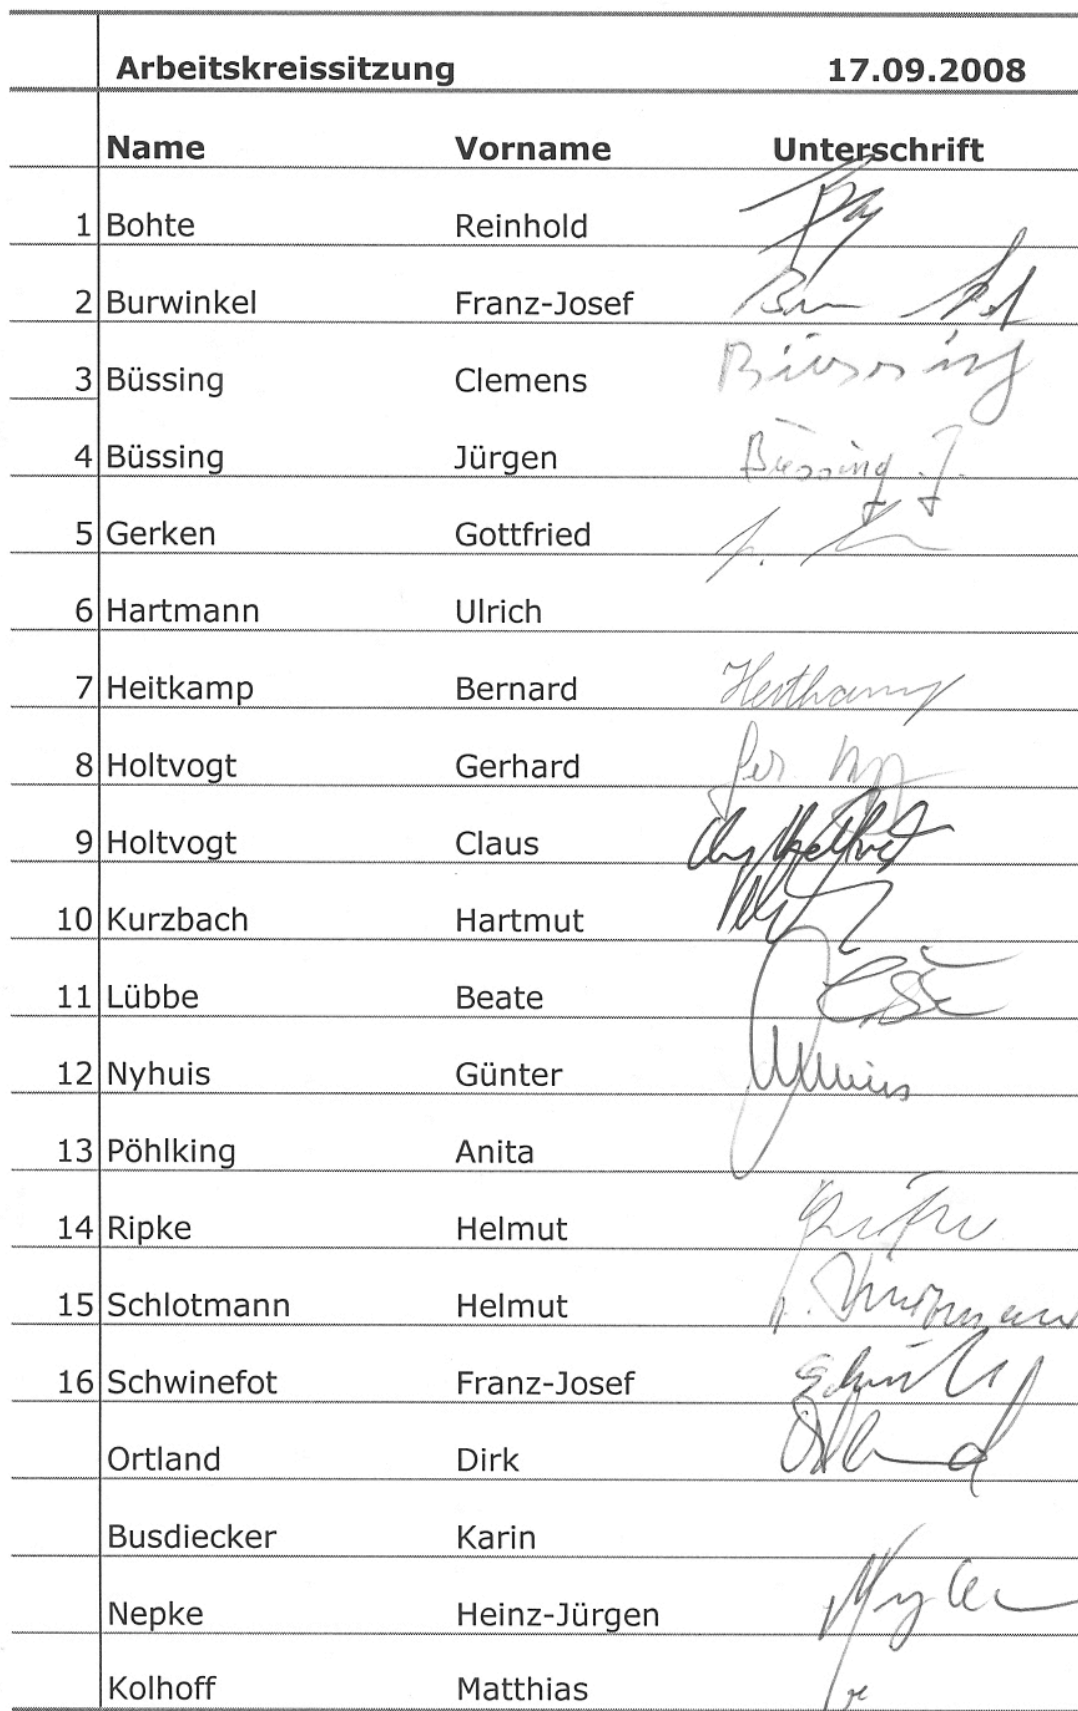 Arbeitskreissitzung 17.09.2008
Name Vorname Unterschrift
1 Bohte Reinhold
2 Burwinkel Franz-Josef
3 Büssing Clemens Büssing
4 Büssing Jürgen Büssing J.
5 Gerken Gottfried
6 Hartmann Ulrich
7 Heitkamp Bernard Heitkamp
8 Holtvogt Gerhard
9 Holtvogt Claus
10 Kurzbach Hartmut
11 Lübbe Beate
12 Nyhuis Günter Nyhuis
13 Pöhlking Anita
14 Ripke Helmut Ripke
15 Schlotmann Helmut
16 Schwinefot Franz-Josef
Ortland Dirk Ortland
Busdiecker Karin
Nepke Heinz-Jürgen
Kolhoff Matthias